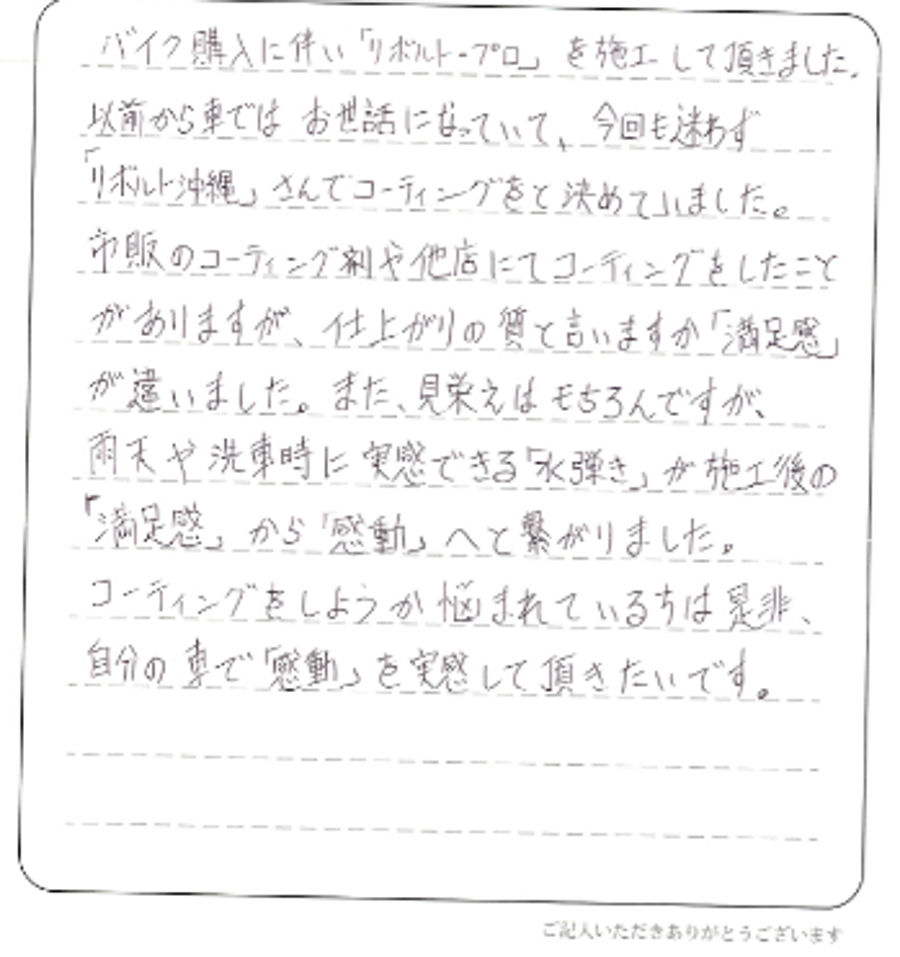 バイク購入に伴い「リボルト-プロ」を施工して頂きました.
以前から車では お世話になっていて、今回も迷わず
「リボルト沖縄」さんでコーティングをと決めていました。
市販のコーティング剤や他店にてコーティングをしたこと
がありますが、仕上がりの質と言いますか「満足感」
が違いました。また、見栄えはもちろんですが、
雨天や洗車時に実感できる「水弾き」が施工後の
「満足感」から「感動」へと繋がりました。
コーティングをしようか悩まれている方は是非、
自分の車で「感動」を実感して頂きたいです。
ご記入いただきありがとうございます